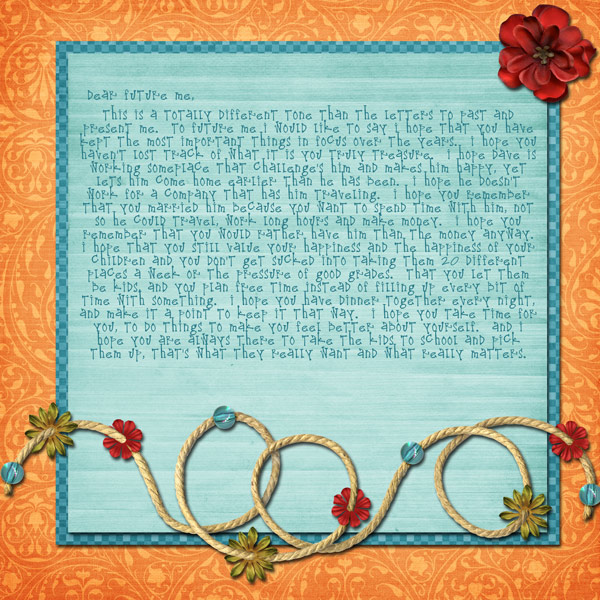 Dear Future me,
This is a totally different tone than the letters to past and
present me. To future me I would like to say I hope that you have
kept the most important things in focus over the years. I hope you
haven't lost track of what it is you truly treasure. I hope Dave is
working someplace that challenge's him and makes him happy, yet
let's him come home earlier than he has been. I hope he doesn't
work for a company that has him traveling. I hope you remember
that you married him because you want to spend time with him, not
so he could travel, work long hours and make money. I hope you
remember that you would rather have him than the money anyway.
I hope that you still value your happiness and the happiness of your
children and you don't get sucked into taking them 20 different
places a week or the pressure of good grades. That you let them
be kids, and you plan free time instead of filling up every bit of
time with something. I hope you have dinner together every night,
and make it a point to keep it that way. I hope you take time for
you, to do things to make you feel better about yourself. And I
hope you are always there to take the kids to school and pick
them up, that's what they really want and what really matters.